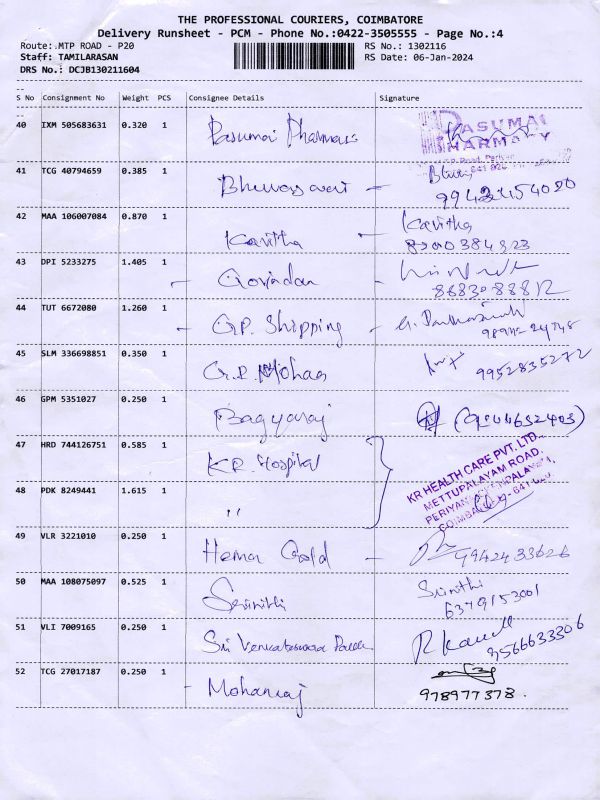 THE PROFESSIONAL COURIERS, COIMBATORE
Delivery Runsheet - PCM - Phone No.:0422-3505555 - Page No.:4
Route: MTP ROAD - P20 RS No.: 1302116
Staff: TAMILARASAN RS Date: 06-Jan-2024
DRS No.: DCJB130211604
S No Consignment No Weight PCS Consignee Details Signature
40 IXM 505683631 0.320 1 Pasumai Pharmacy PASUMAI PHARMACY
41 TCG 40794659 0.385 1 Bhuvaneswari
42 MAA 106007084 0.870 1 Kavitha Kavitha
43 DPI 5233275 1.405 1 Govindan
8883088812
44 TUT 6672080 1.260 1 G.P. Shipping
45 SLM 336698851 0.350 1 G.R. Mohan 9952835272
46 GPM 5351027 0.250 1 Bagyaraj
47 HRD 744126751 0.585 1 KR Hospital KR HEALTH CARE PVT. LTD.,
METTUPALAYAM ROAD,
48 PDK 8249441 1.615 1 "
49 VLR 3221010 0.250 1 Hema Gold 9942433626
50 MAA 108075097 0.525 1 Srinithi Srinithi
6379153001
51 VLI 7009165 0.250 1 Sri Venkateswara 9566633306
52 TCG 27017187 0.250 1 Mohanraj
978977378.